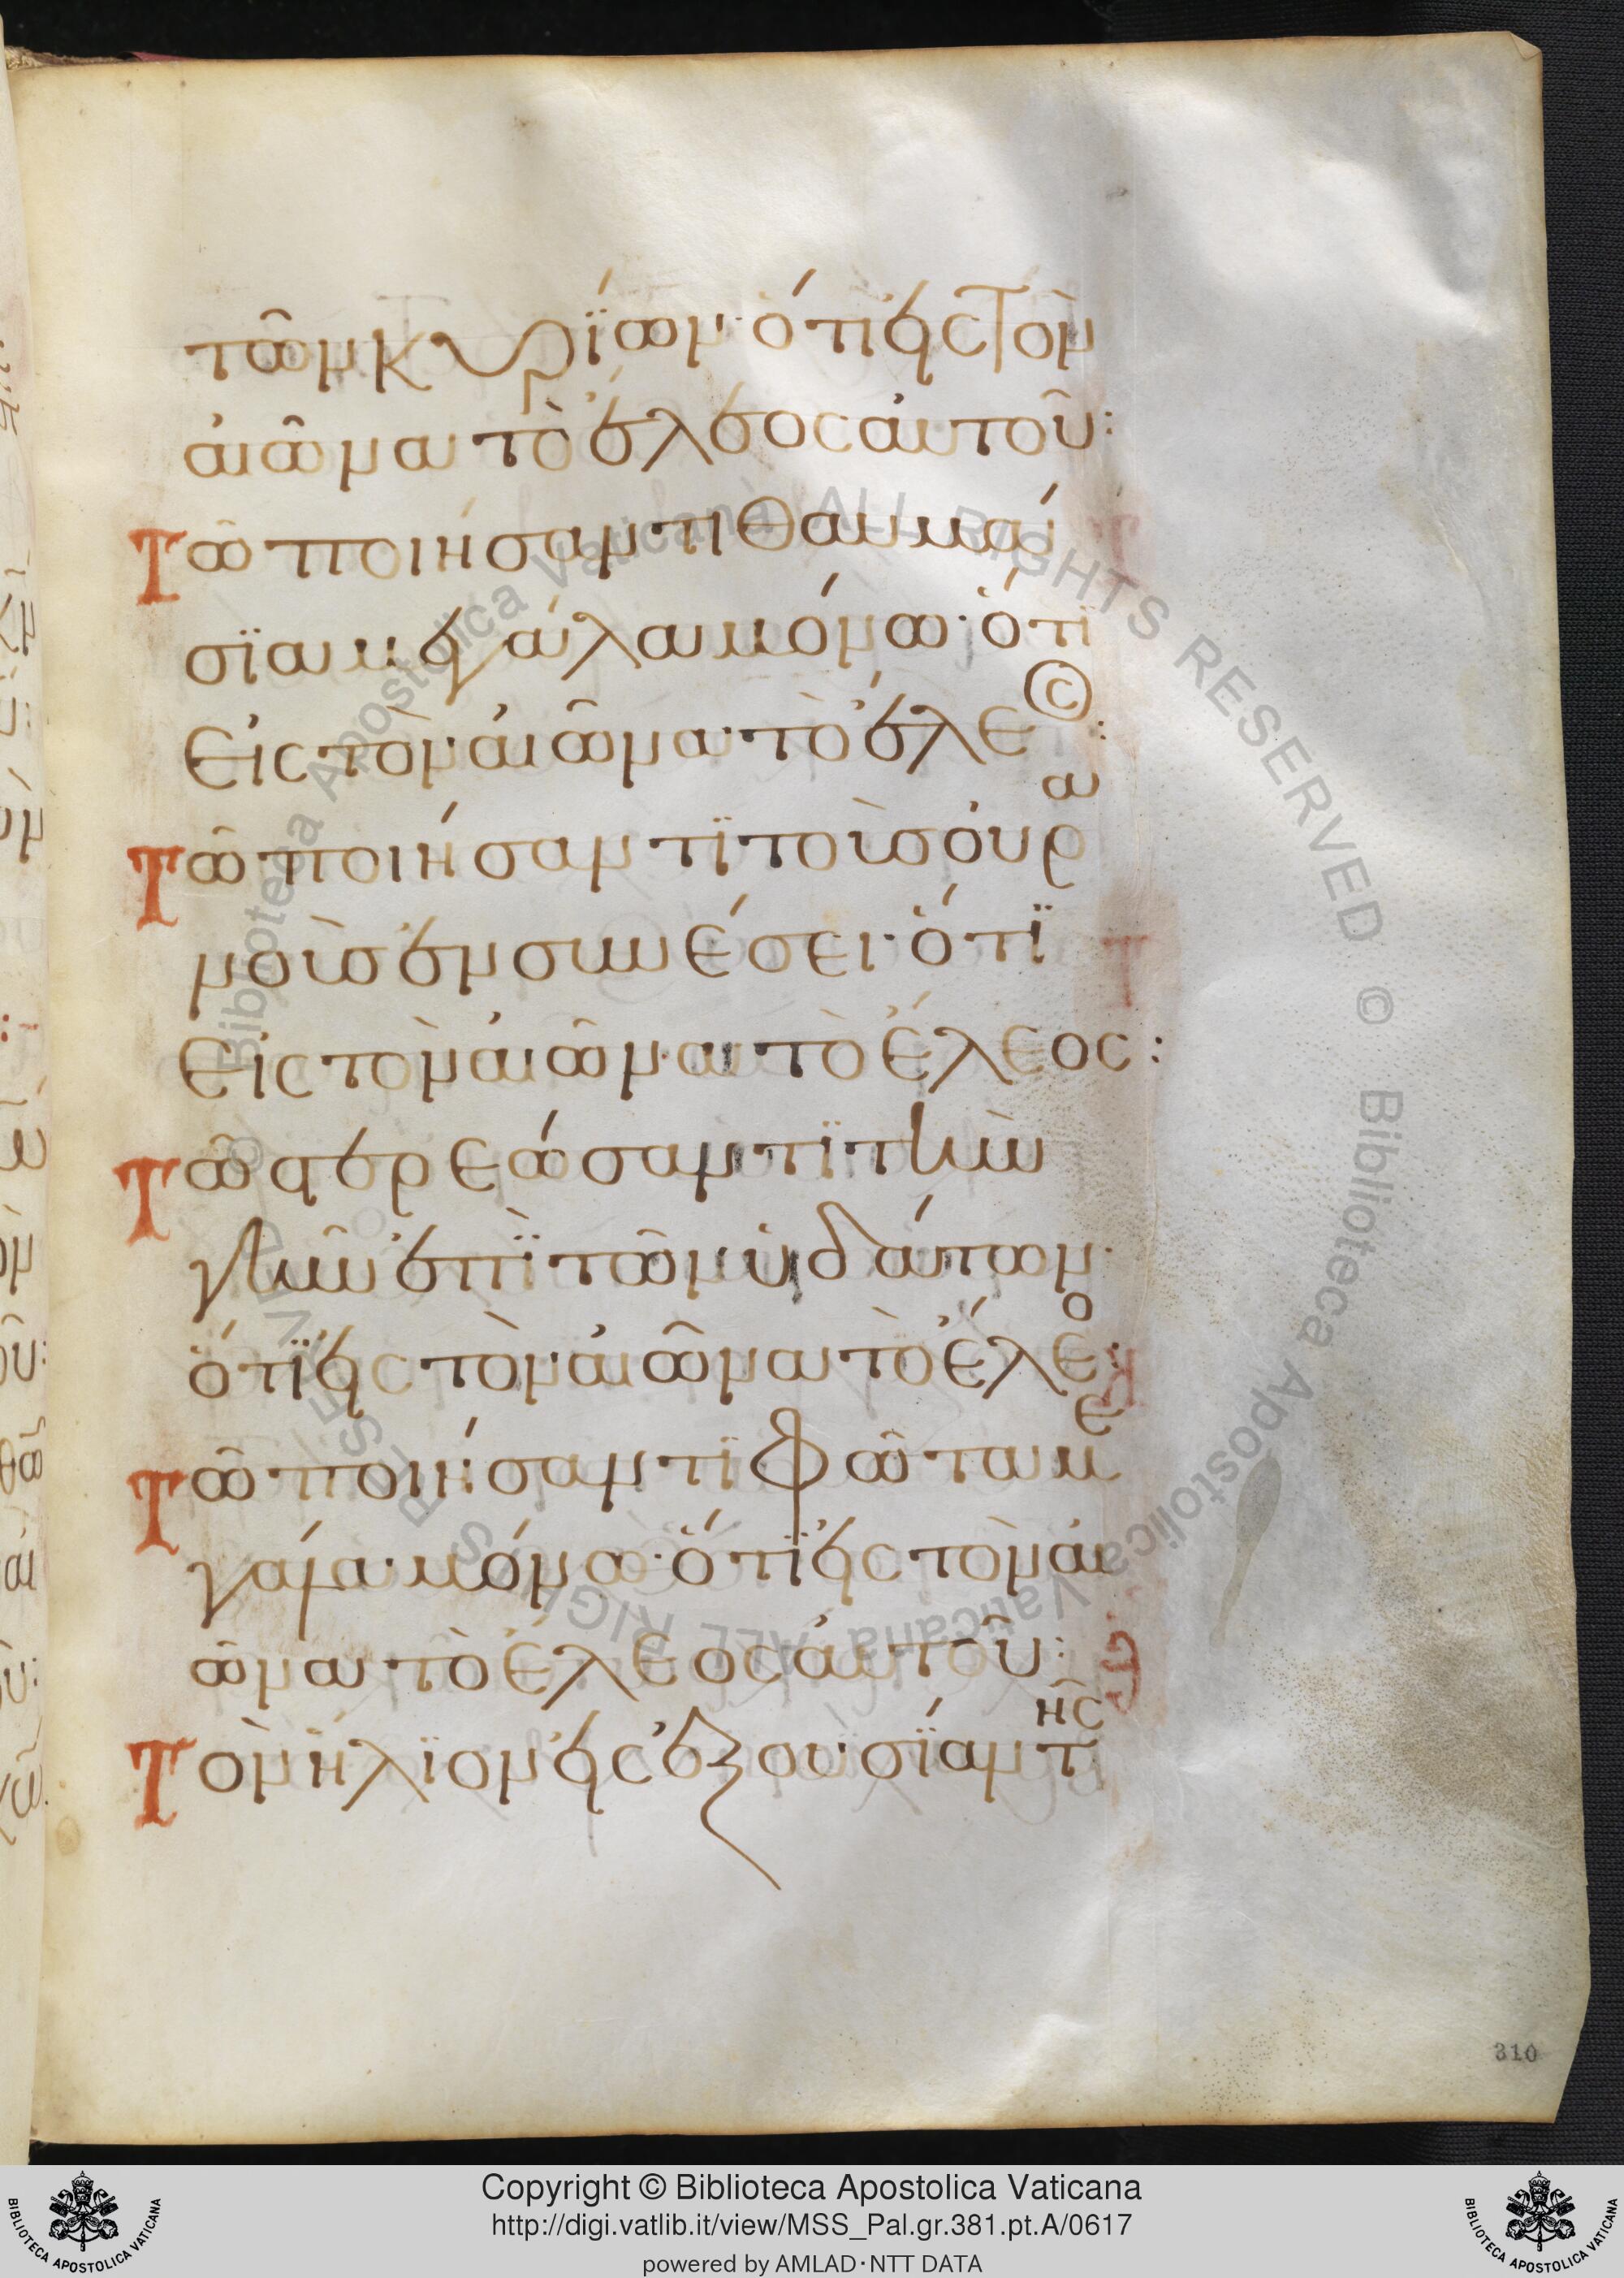 τῶν κυρίων· ὅτι εἰς τὸν
αἰῶνα τὸ ἔλεος αὐτοῦ:
Τῶ ποιήσαντι θαυμά
σϊα μεγάλα μόνω· ὅτι
εἰς τὸν αἰῶνα τὸ ἔλεος:
Τῶ ποιήσαντϊ τοὺσ οὐρα
νοὺσ ἐν συνέσει· ὅτϊ
εἰς τὸν αἰῶνα τὸ ἔλεος:
Τῶ στερεώσαντϊ τὴν
γῆν ἐπῒ τῶν ὑδάτων·
ὅτϊ εἰς τὸν αἰῶνα τὸ ἔλεο:
Τῶ ποιήσαντι φῶτα με
γάλα μόνω· ὅτϊ εἰς τὸν αἰ
ῶνα τὸ ἔλεος αὐτοῦ:
Τὸν ἥλϊον εἰς ἐξουσΐαν τῆς
310
Biblioteca Apostolica Vaticana ALL RIGHTS RESERVED ©
Biblioteca Apostolica Vaticana ALL RIGHTS RESERVED ©
BIBLIOTECA APOSTOLICA VATICANA
Copyright © Biblioteca Apostolica Vaticana
http://digi.vatlib.it/view/MSS_Pal.gr.381.pt.A/0617
powered by AMLAD·NTT DATA
BIBLIOTECA APOSTOLICA VATICANA